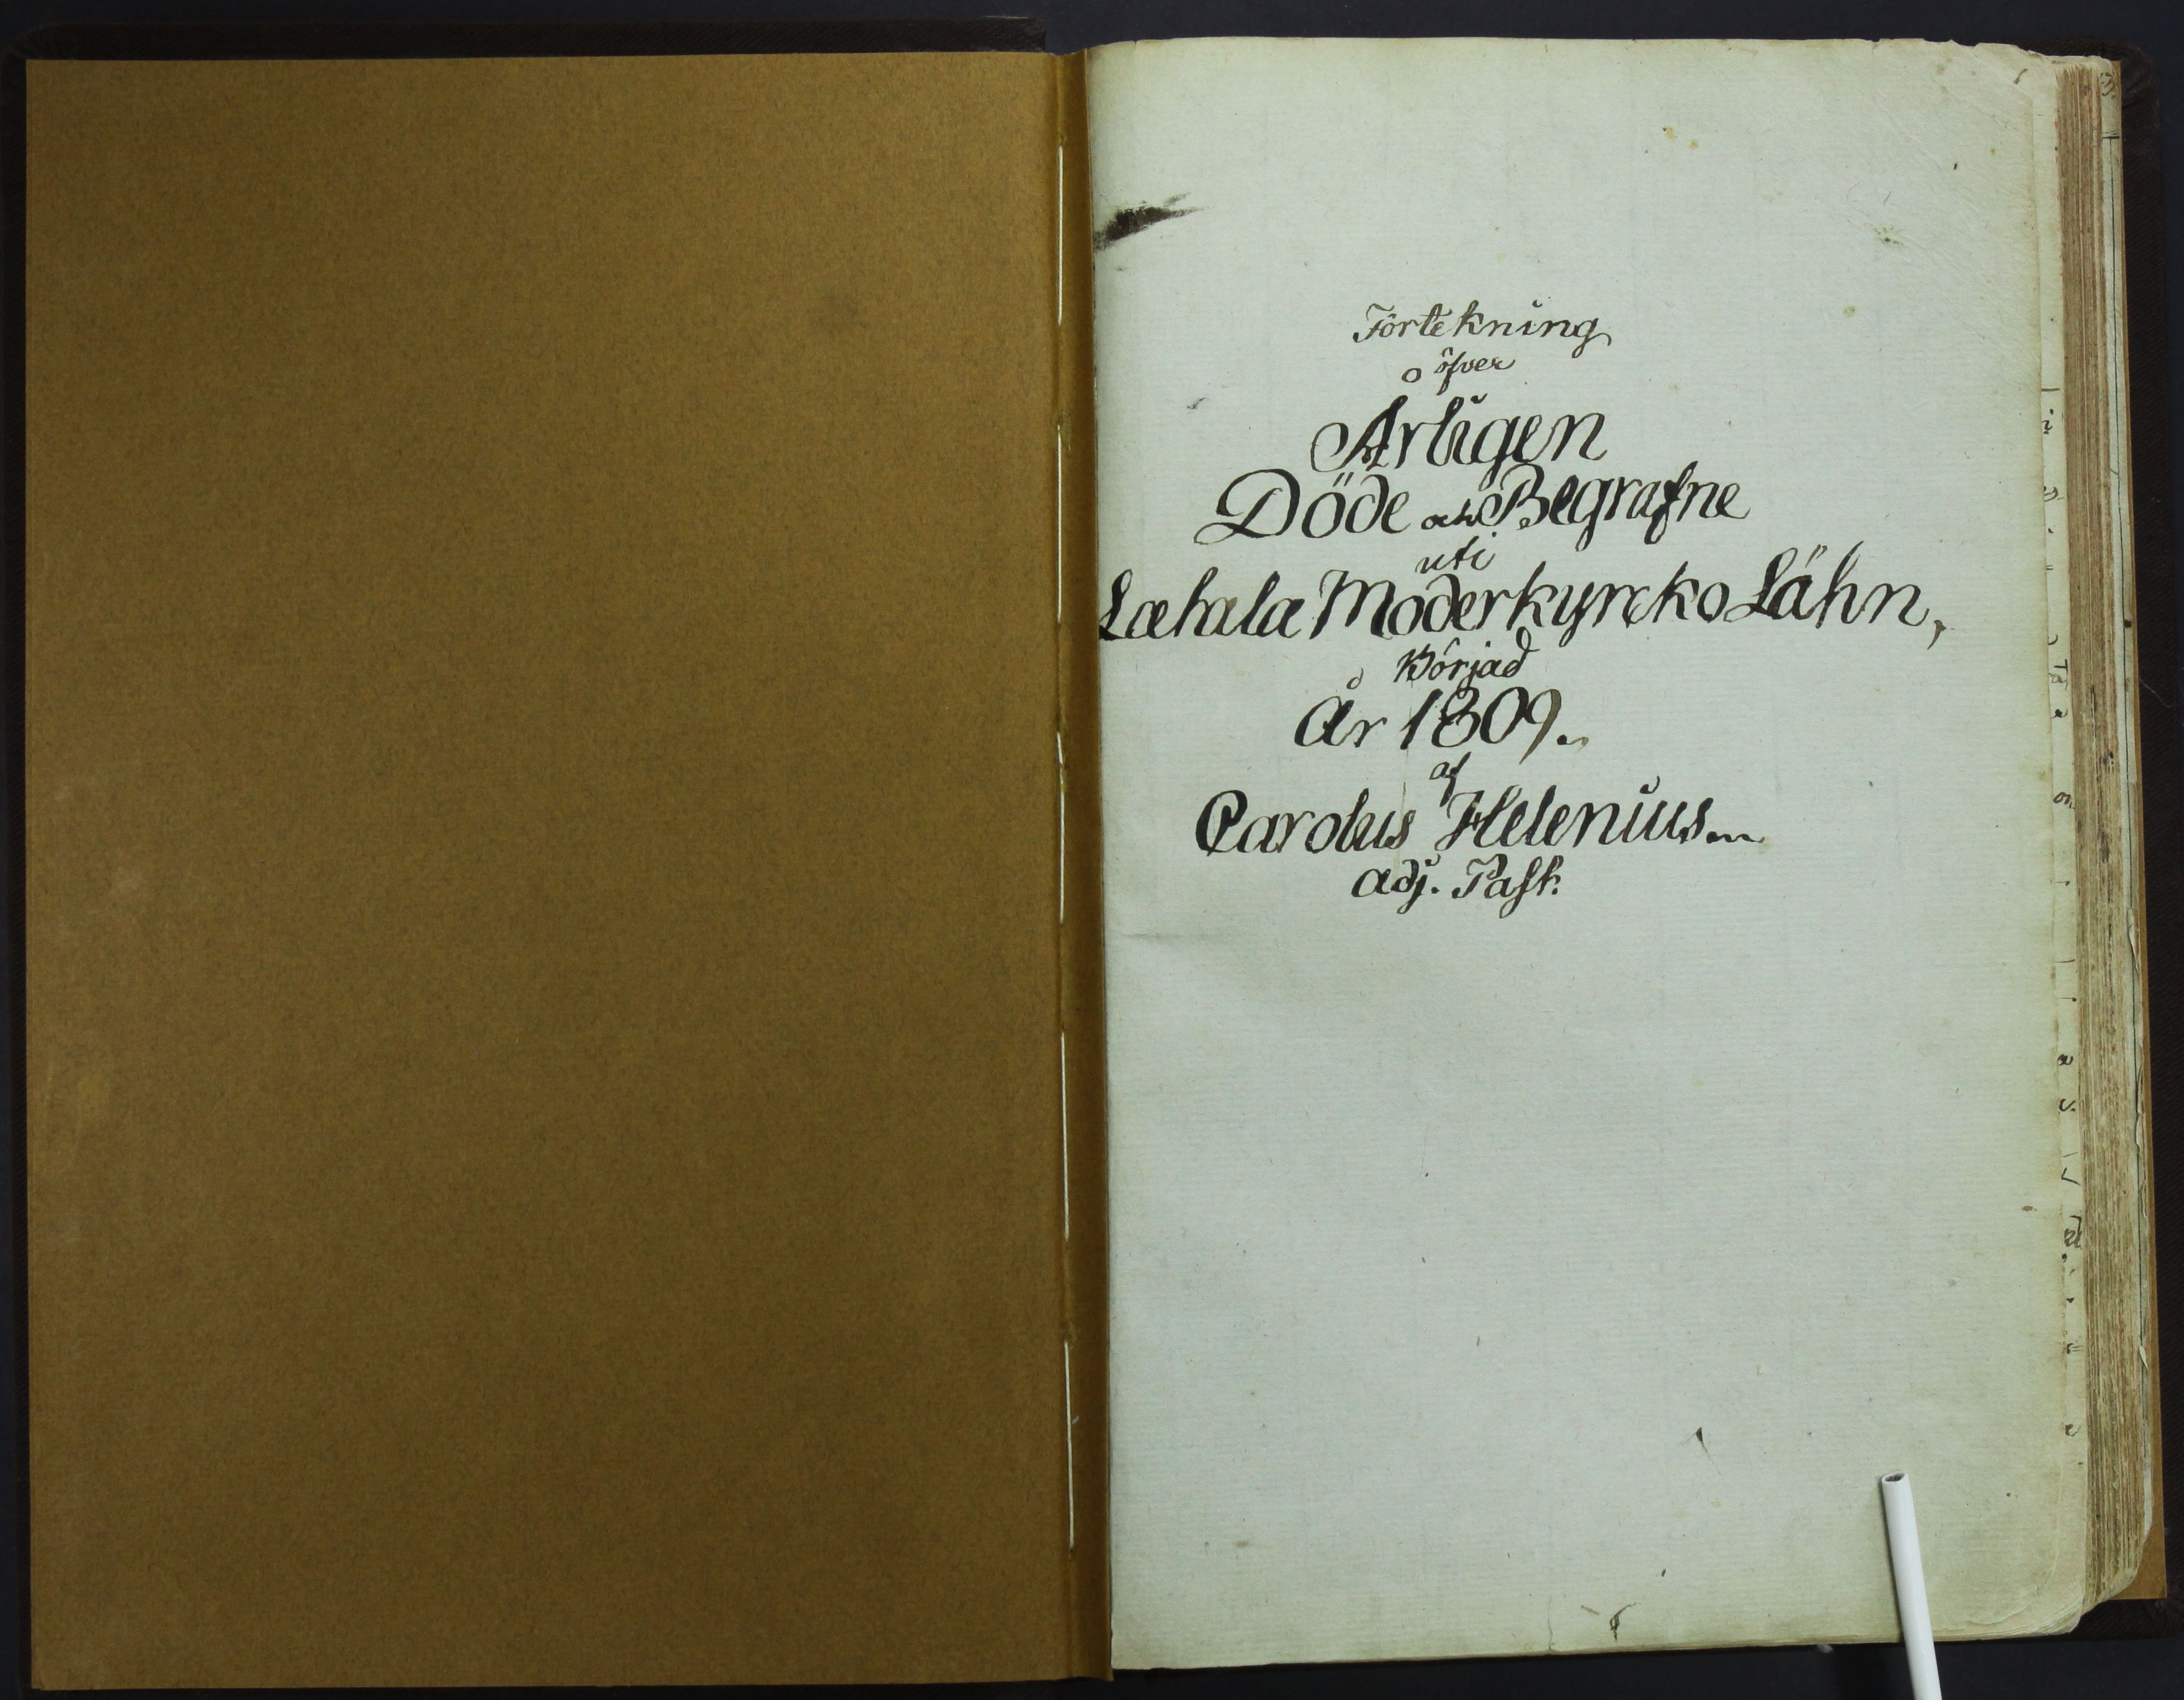 Förtekning
öfver
Årligen
Döde och Begrafne
uti
Læhala Moderkyrcko Lähn,
Börjad
År 1809.
af
Carolus Helenius
Adj. Past.